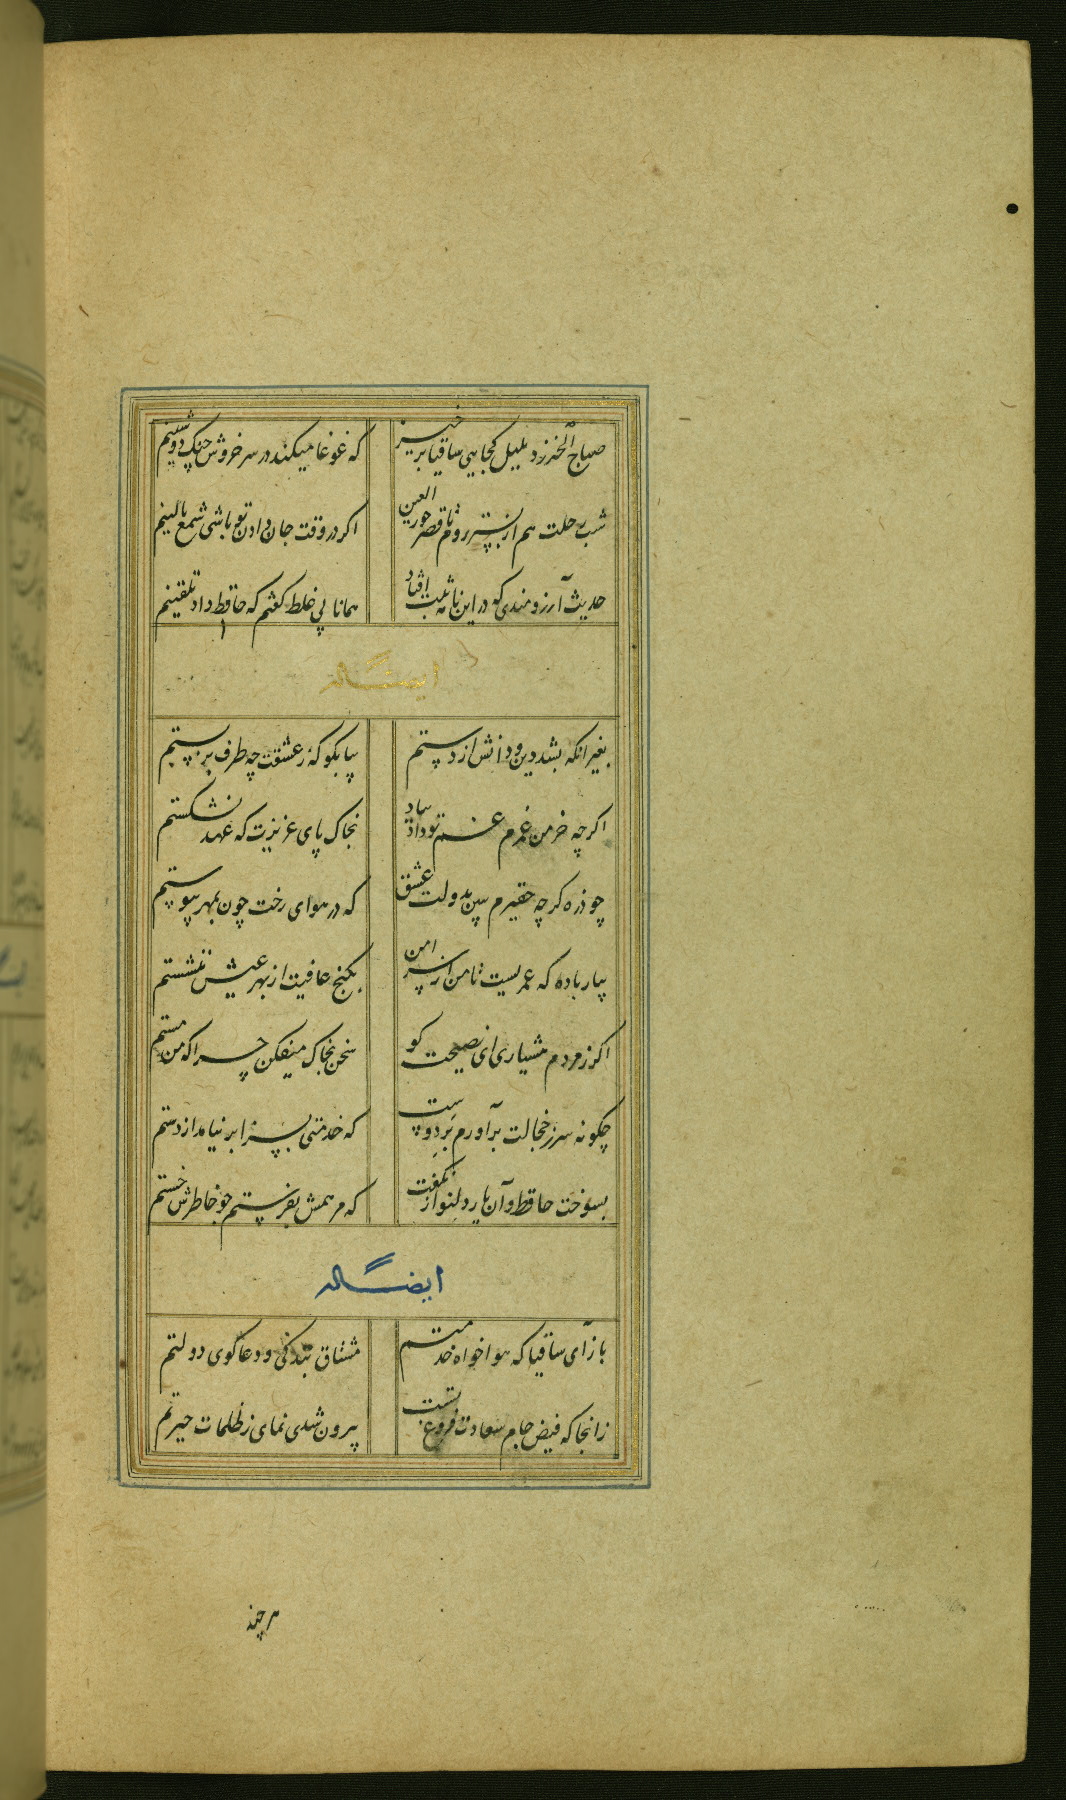 صباح الخیر زد بلبل کجایی ساقیا برخیز که غوغا میکند در سر خروش چنک دوشینم
شب رحلت هم از بستر روم تا قصر حور العین اکر در وقت جان دادن تو باشی شمع بالینم
حدیث آرزومندی که در این نامه ثبت افتاد همانا بی غلط کفتم که حافظ داد تلقینم
ایضاً له
بغیر انکه بشد دین و دانش از دستم بیا بکو که ز عشقت چه طرف بربستم
اکر چه خرمن عمرم غم تو داد بباد بخاک پای عزیزت که عهد نشکستم
چو ذره کرچه حقیرم ببین بدولت عشق که در هوای رخت چون بمهر پیوستم
بیار باده که عمریست تا من از سر امن بکنج عافیت از بهر عیش ننشستم
اکر ز مردم هشیاری ای نصیحت کو سخن بخاک میفکن چرا که من مستم
چکونه سر ز خجالت برآورم بر دوست که خدمتی بسزا بر نیامد از دستم
بسوخت حافظ و آن یار دلنواز نکفت که مرهمش بفرستم چو خاطرش خستم
ایضاً له
باز آی ساقیا که هواخواه خدمتم مشتاق بندکی و دعا کوی دولتم
زانجا که فیض جام سعادت فروغ تست بیرون شدی نمای ز ظلمات حیرتم
هر چند